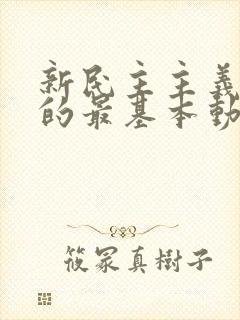 新民主主義
的最基本動
筱冢真樹子